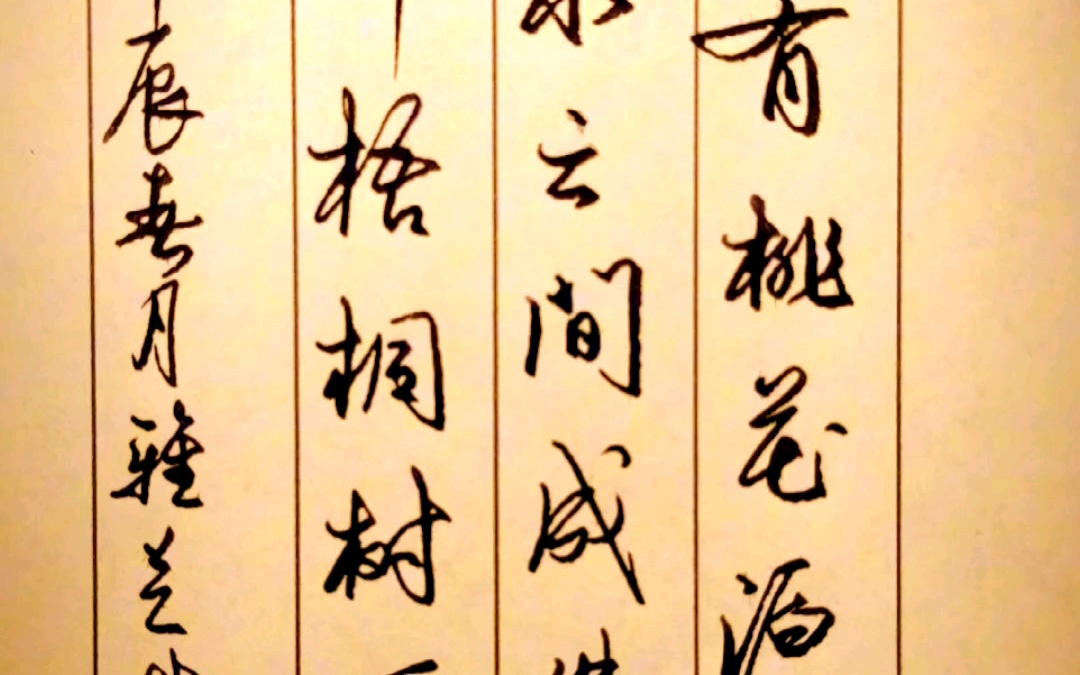 有桃花酒
云间成
梧桐树
辰春月雅兰